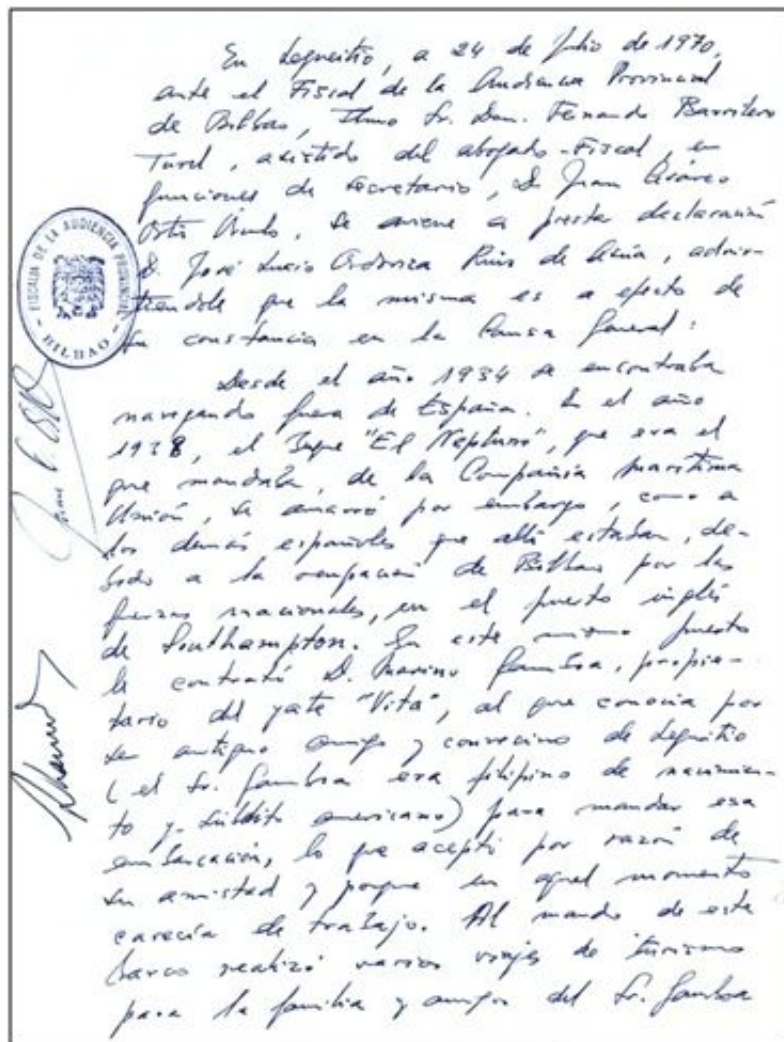 En Lequeitio, a 24 de Julio de 1970,
ante el Fiscal de la Audiencia Provincial
de Bilbao, Ilmo Sr. Don. Fernando Barrilero
Turel, asistido del abogado-Fiscal, en
funciones de secretario, D. Juan Álvarez
Ortiz, se aviene a prestar declaración
D. José Ordorica Ruiz de Asúa, advir-
tiendole que la misma es a efecto de
su constancia en la Causa General:
Desde el año 1934 se encontraba
navegando fuera de España. En el año
1938, el buque "El Neptuno", que era el
que mandaba, de la Compañía Marítima
Unión, se amarró por embargo, como a
los demás españoles que allí estaban, de-
bido a la ocupación de Bilbao por las
fuerzas nacionales, en el puerto inglés
de Southampton. En este mismo puerto
le contrató D. Marino Gamboa, propie-
tario del yate "Vita", al que conocía por
ser antiguo amigo y convecino de Lequeitio
(el Sr. Gamboa era filipino de nacimien-
to y súbdito americano) para mandar esa
embarcación, lo que aceptó por razón de
su amistad y porque en aquel momento
carecía de trabajo. Al mando de este
barco realizó varios viajes de turismo
para la familia y amigos del Sr. Gamboa
FISCALIA DE LA AUDIENCIA PROVINCIAL
- BILBAO -